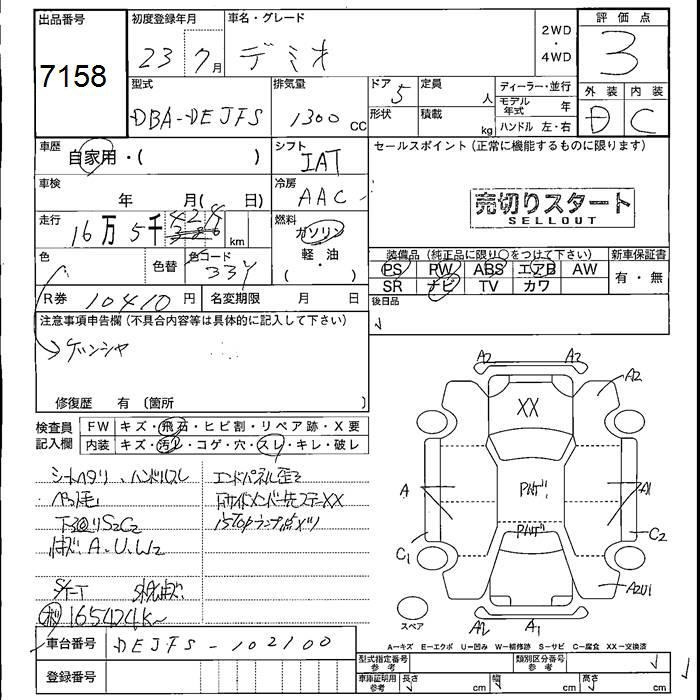 出品番号 初度登録年月 車名・グレード 2WD・4WD 評価点
7158 23 7月 デミオ 3
型式 排気量 ドア 5 定員 人 ディーラー・並行 外装 内装
DBA-DEJFS 1300 cc 形状 積載 kg モデル年式 年 D C
ハンドル 左・右
車歴 自家用・( ) シフト IAT セールスポイント (正常に機能するものに限ります)
車検 年 月( 日) 冷房 AAC
売切りスタート
SELLOUT
走行 16万5千424 km 燃料 ガソリン
軽・油
( )
色 色替 色コード 33Y
装備品 (純正品に限り○をつけて下さい) 新車保証書
PS PW ABS エアB AW 有・無
SR ナビ TV カワ
R券 10410円 名変期限 月 日 後日品
注意事項申告欄 (不具合内容等は具体的に記入して下さい)
ゲンシャ
修復歴 有 〔箇所 〕
検査員 FW キズ・飛石・ヒビ割・リペア跡・X要
記入欄 内装 キズ・汚レ・コゲ・穴・スレ・キレ・破レ
シートヘタリ、ハンドルスレ エンドパネル歪ミ
下回りS2C2
A.U.W2
165424K~
車台番号 DEJFS-102100
登録番号
A2 A2
A2
XX
A A1
C1 C2
A2U1
スペア A2 A1
A-キズ E-エクボ U-凹み W-補修跡 S-サビ C-腐食 XX-交換済
型式指定番号 参考 類別区分番号 参考
車庫証明用 参考 長さ cm 幅 cm 高さ cm